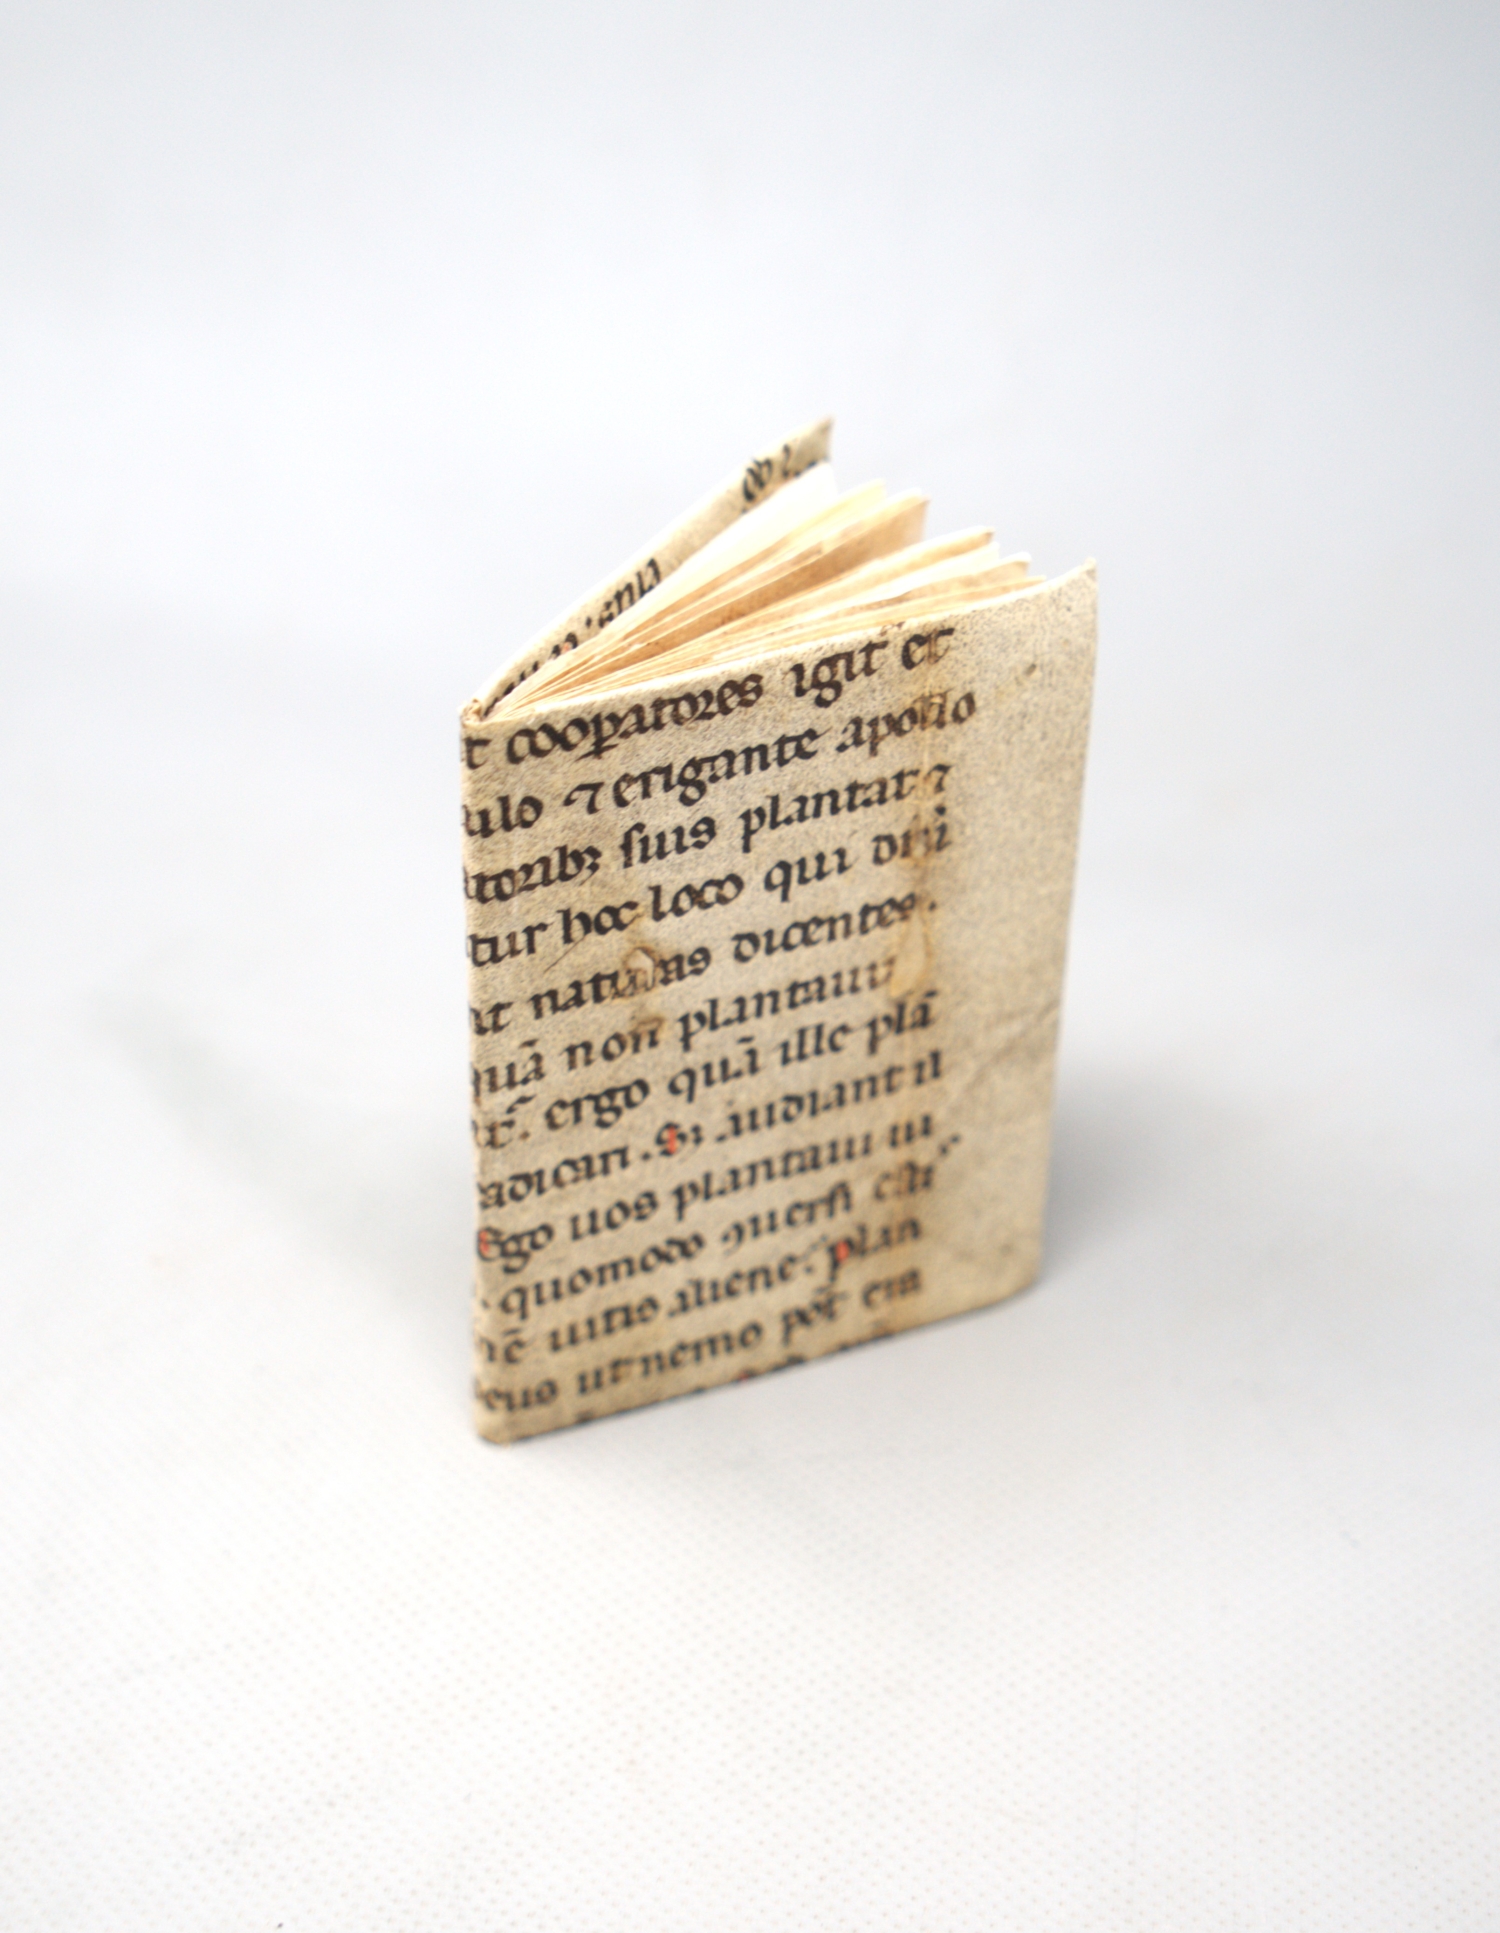 t cooꝑatores igit̄ et
ulo ⁊ erigante apollo
toribꝫ suis plantat ⁊
tur hoc loco qui diu̇i
nt naturas dicentes.
quā non plantauit
t̄. ergo quā ille plā
adicari. Si audiant il
Ego uos plantaui ui
quomodo ꝯuersi esti
nē uitis aliene. plan
eus ut nemo pōt eni